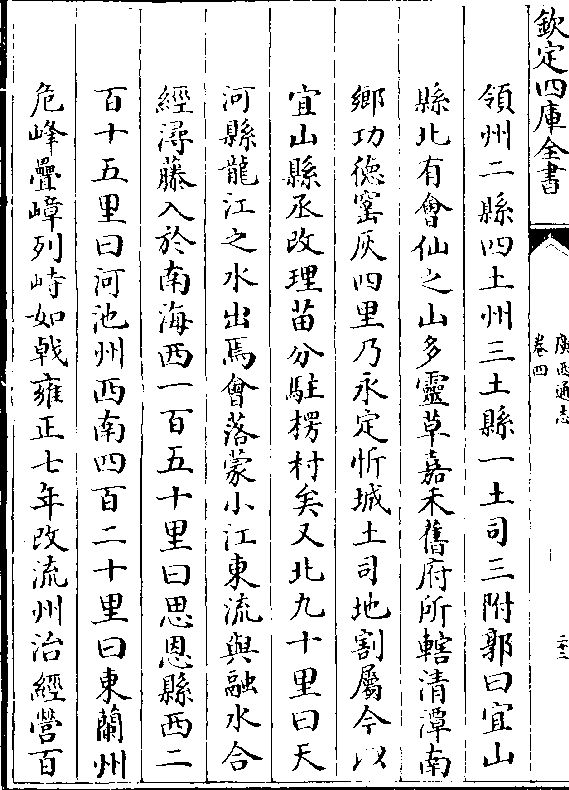 欽定四庫全書
廣西通志
卷四
領州二縣四土州三土縣一土司三附郭曰宜山
縣北有會仙之山多靈草嘉禾舊府所轄清潭南
鄉功徳窰灰四里乃永定忻城土司地割屬今以
宜山縣丞改理苗分駐楞村矣又北九十里曰天
河縣龍江之水出焉會落蒙小江東流與融水合
經潯藤入於南海西一百五十里曰思恩縣西二
百十五里曰河池州西南四百二十里曰東蘭州
危峰疊嶂列峙如㦸雍正七年改流州治經營百